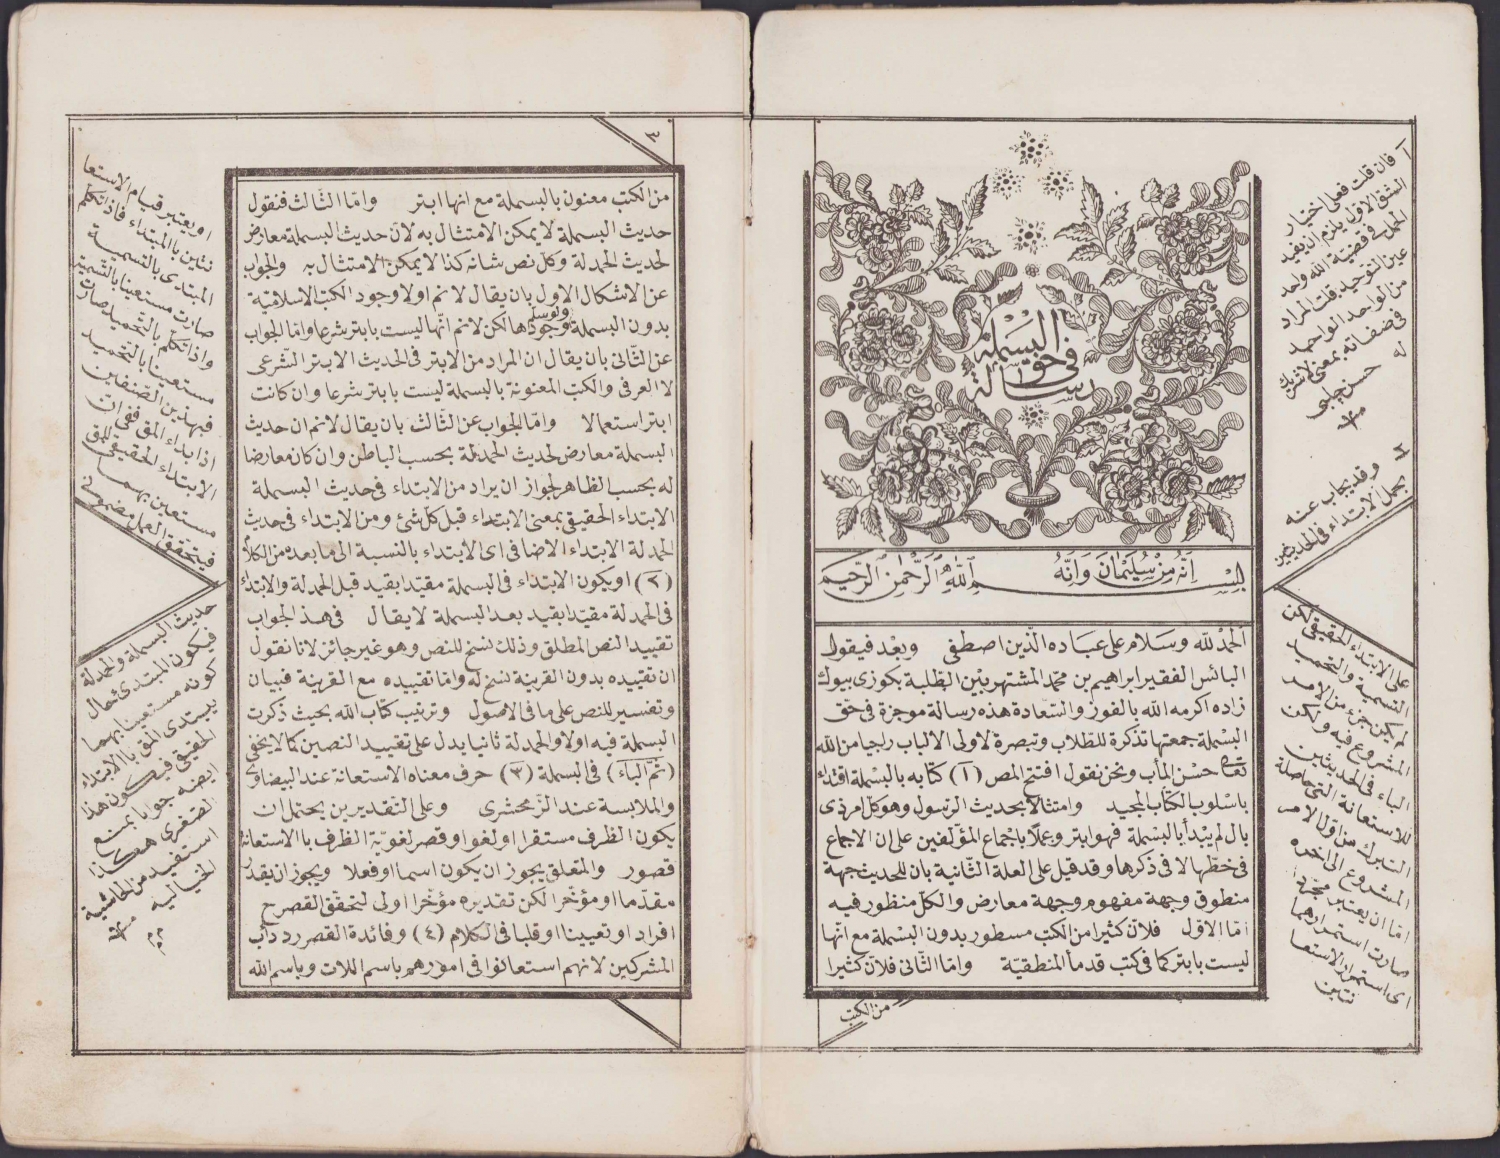 رسالة
في حق
البسملة
انه من سليمان وانه بسم الله الرحمن الرحيم
الحمد لله وسلام على عباده الذين اصطفى وبعد فيقول
البائس الفقير ابراهيم بن محمد المشتهر بين الطلبة بكوزى بيوك
زاده اكرمه الله بالفوز والسعادة هذه رسالة موجزة في حق
البسملة جمعتها تذكرة للطلاب وتبصرة لاولى الالباب راجيا من الله
تعالى حسن المأب ونحن نقول افتتح المص (١) كتابه بالبسملة اقتداء
باسلوب الكتاب المجيد وامتثالا بحديث الرسول وهو كل امر ذى
بال لم يبدأ بالبسملة فهو ابتر وعملا باجماع المؤلفين على ان الاجماع
في خطها لا في ذكرها وقد قيل على العلة الثانية بان للحديث جهة
منطوق وجهة مفهوم وجهة معارض والكل منظور فيه
اما الاول فلان كثيرا من الكتب مسطور بدون البسملة مع انها
ليست بابتر كما في كتب قدماء المنطقية واما الثانى فلان كثيرا
من الكتب
آ فان قلت فعلى اختيار
الشق الاول يلزم ان يفيد
الحمل في قضية الله واحد
عين التوحيد قلت المراد
من الواحد الواحد
في صفاته بمعنى لا شريك
له حسن چلبى
وقد يجاب عنه
بحمل الابتداء في الحديثين
على الابتداء الحقيقى لكن
التسمية والتحميد
لم يكن جزء من الامر
المشروع فيه ولكن
الباء في الحديثين
للاستعانة التى حاصلة
التبرك من اول الامر
المشروع الى اخره
اما ان يعتبر مجرد
صارت استمرارهما
اى استمرار الاستعا
نتين
٣
من الكتب معنون بالبسملة مع انها ابتر واما الثالث فنقول
حديث البسملة لا يمكن الامتثال به لان حديث البسملة معارض
لحديث الحمدلة وكل نص شانه كذا لا يمكن الامتثال به والجواب
عن الاشكال الاول بان يقال لا نم اولا وجود الكتب الاسلامية
بدون البسملة ولو سلم وجودها لكن لا نم انها ليست بابتر شرعا واما الجواب
عن الثانى بان يقال ان المراد من الابتر في الحديث الابتر الشرعى
لا العرفى والكتب المعنونة بالبسملة ليست بابتر شرعا وان كانت
ابتر استعمالا واما الجواب عن الثالث بان يقال لا نم ان حديث
البسملة معارض لحديث الحمدلة بحسب الباطن وان كان معارضا
له بحسب الظاهر لجواز ان يراد من الابتداء في حديث البسملة
الابتداء الحقيقى بمعنى الابتداء قبل كل شئ ومن الابتداء في حديث
الحمدلة الابتداء الاضافى اى الابتداء بالنسبة الى ما بعده من الكلام
(٢) او يكون الابتداء في البسملة مقيدا بقيد قبل الحمدلة والابتداء
في الحمدلة مقيدا بقيد بعد البسملة لا يقال في هذا الجواب
تقييد النص المطلق وذلك نسخ للنص وهو غير جائز لانا نقول
ان تقييده بدون القرينة نسخ له واما تقييده مع القرينة فبيان
وتفسير للنص على ما في الاصول وترتيب كتاب الله بحيث ذكرت
البسملة فيه اولا والحمدلة ثانيا يدل على تقييد النصين كما لا يخفى
(ثم الباء) في البسملة (٣) حرف معناه الاستعانة عند البيضاوى
والملابسة عند الزمخشرى وعلى التقديرين يحتمل ان
يكون الظرف مستقرا او لغوا وقصر لغوية الظرف بالاستعانة
قصور والمتعلق يجوز ان يكون اسما او فعلا ويجوز ان يقدر
مقدما او مؤخرا لكن تقديره مؤخرا اولى لتحقق القصر ح
افراد او تعيينا او قلبا في الكلام (٤) وفائدة القصر رد دأب
المشركين لانهم استعانوا في امورهم باسم اللات وباسم الله
او يعتبر قيام الاستعا
نتين بالمبتداء فاذا تكلم
المبتدى بالتسمية
صارت مستعينا بالتسمية
واذا تكلم بالتحميد صارت
مستعينا بالتحميد
فبهذين الصنفين
اذا بداء المق ففى ان
الابتداء الحقيقى للمق
مستعين بهما
فيتحقق العمل مضمونى
حديث البسملة والحمدلة
فيكون المبتدى حال
كونه مستعينا بهما
يبتدى المق بالابتداء
الحقيقى فيكون هذا
ايضه جوابا بمنع
الصغرى هكذا
استفيد من الحاشية
الخيالية